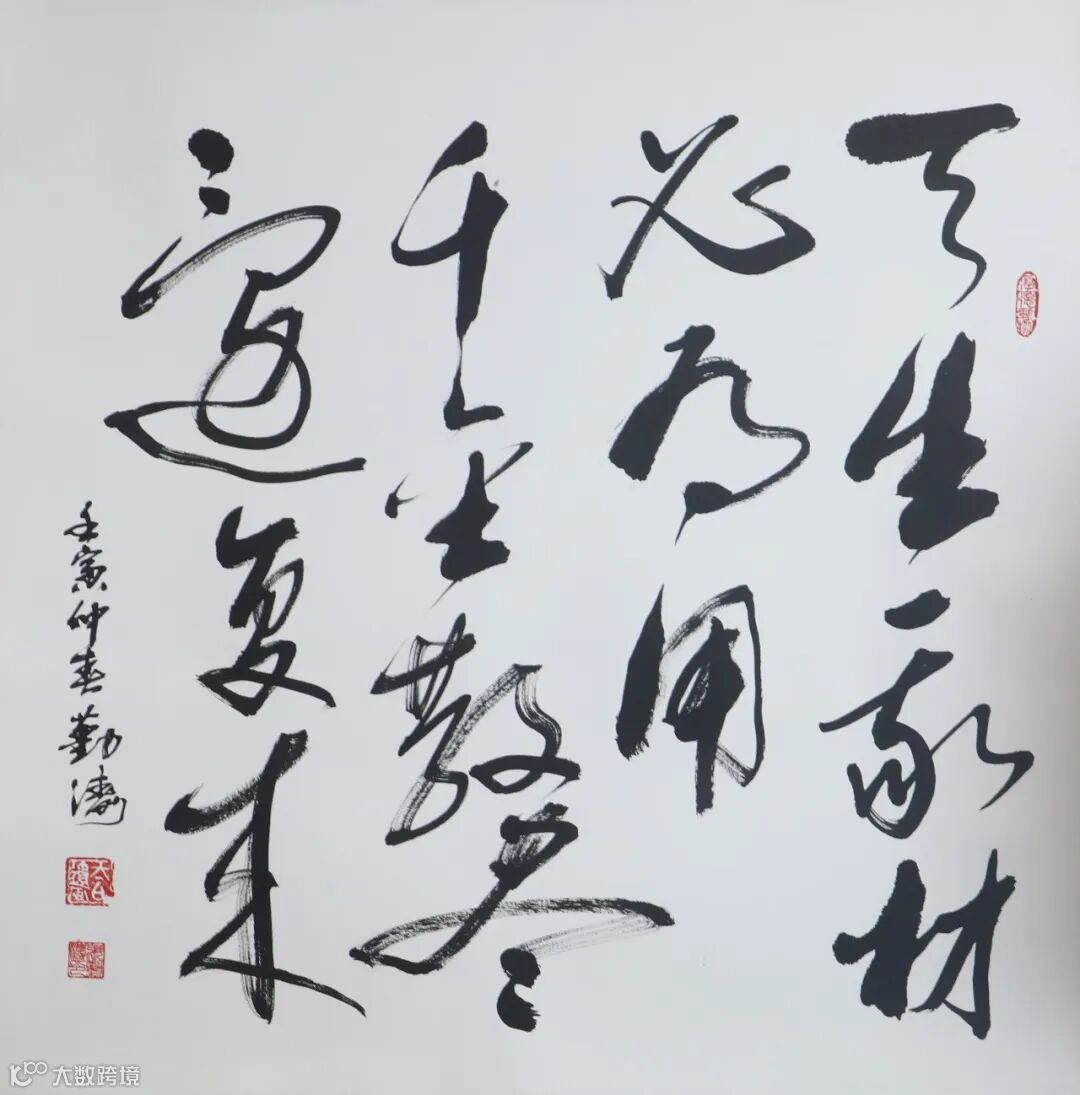 天生我材
必有用
千金散尽
還复来
壬寅仲春勤濤
大数跨境